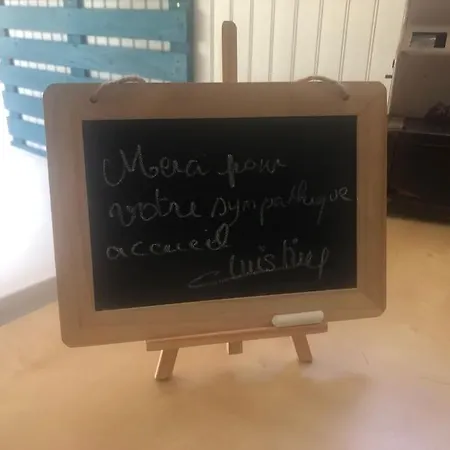 Merci pour
votre sympathique
accueil
Christine